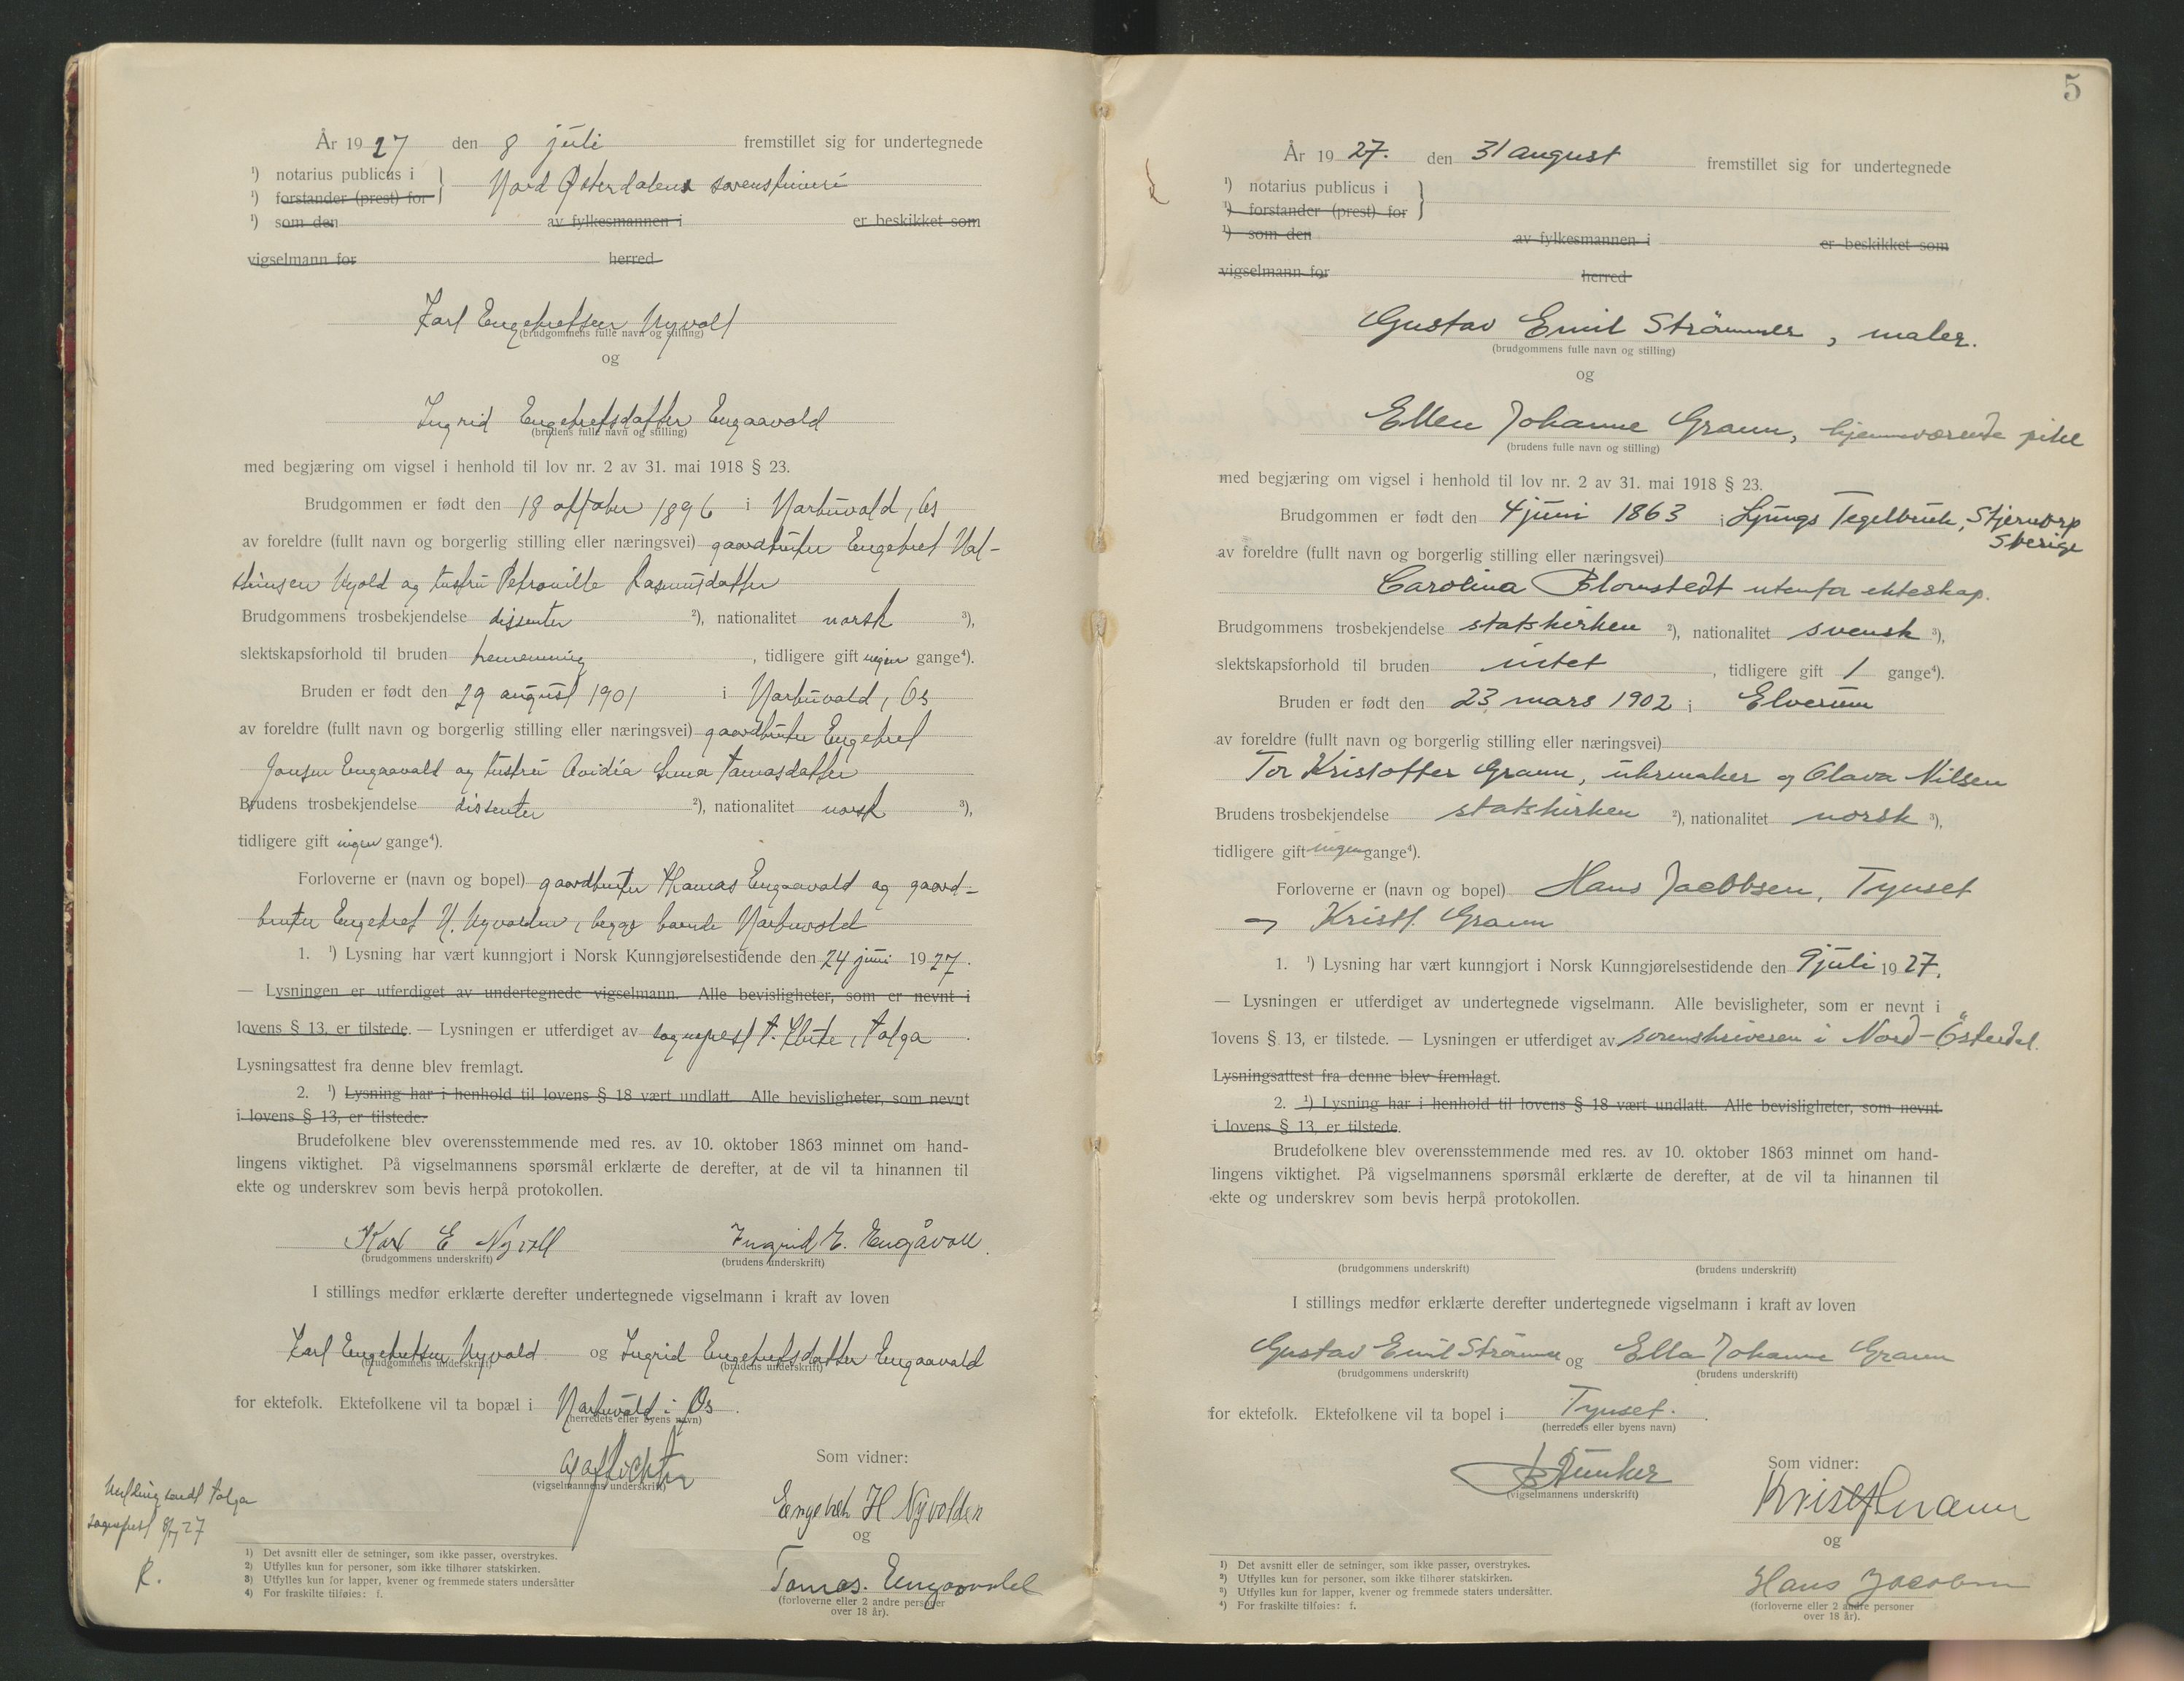 År 1927 den 8 juli fremstillet sig for undertegnede
¹) notarius publicus i
¹) forstander (prest) for
Nord Østerdalens sorenskriveri
¹) som den av fylkesmannen i er beskikket som
vigselmann for herred
Karl Engebretsen Nyvold
(brudgommens fulle navn og stilling)
og
Ingrid Engebretsdatter Engaavold
(brudens fulle navn og stilling)
med begjæring om vigsel i henhold til lov nr. 2 av 31. mai 1918 § 23.
Brudgommen er født den 18 oktober 1896 i Narbuvold, Os
av foreldre (fullt navn og borgerlig stilling eller næringsvei) gaardbruker Engebret Hal-
Nyvold og hustru Petronille Rasmusdatter
Brudgommens trosbekjendelse dissenter ²), nationalitet norsk ³),
slektskapsforhold til bruden tremenning, tidligere gift ingen gange⁴).
Bruden er født den 29 august 1901 i Narbuvold, Os
av foreldre (fullt navn og borgerlig stilling eller næringsvei) gaardbruker Engebret
Jonsen Engaavold og hustru Tomasdatter
Brudens trosbekjendelse dissenter ²), nationalitet norsk ³),
tidligere gift ingen gange⁴).
Forloverne er (navn og bopel) gaardbruker Thomas Engaavold og gaard-
bruker Engebret H. Nyvolden, begge boende Narbuvold
1. ¹) Lysning har vært kunngjort i Norsk Kunngjørelsestidende den 24 juni 1927.
— Lysningen er utferdiget av undertegnede vigselmann. Alle bevisligheter, som er nevnt i
lovens § 13, er tilstede. — Lysningen er utferdiget av sogneprest Tolga.
Lysningsattest fra denne blev fremlagt.
2. ¹) Lysning har i henhold til lovens § 18 vært undlatt. Alle bevisligheter, som nevnt
i lovens § 13, er tilstede.
Brudefolkene blev overensstemmende med res. av 10. oktober 1863 minnet om hand-
lingens viktighet. På vigselmannens spørsmål erklærte de derefter, at de vil ta hinannen til
ekte og underskrev som bevis herpå protokollen.
Karl E Nyvoll Ingrid E. Engåvoll.
(brudgommens underskrift) (brudens underskrift)
I stillings medfør erklærte derefter undertegnede vigselmann i kraft av loven
Karl Engebretsen Nyvold og Ingrid Engebretsdatter Engaavold
(brudgommens underskrift) (brudens underskrift)
for ektefolk. Ektefolkene vil ta bopæl i Narbuvold i Os.
(herredets eller byens navn)
(vigselmannens underskrift)
Som vidner:
Engebret H Nyvolden
og
Tomas. Engaavold
(forloverne eller 2 andre personer
over 18 år).
Melding sendt Tolga
sogneprest 8/7 27
R.
¹) Det avsnitt eller de setninger, som ikke passer, overstrykes.
²) Utfylles kun for personer, som ikke tilhører statskirken.
³) Utfylles kun for lapper, kvener og fremmede staters undersåtter
⁴) For fraskilte tilføies: f.
5
År 1927. den 31 august fremstillet sig for undertegnede
¹) notarius publicus i
¹) forstander (prest) for
¹) som den av fylkesmannen i er beskikket som
vigselmann for herred
Gustav Emil Strömmer, maler.
(brudgommens fulle navn og stilling)
og
Ellen Johanne Graun, hjemmeværende pike
(brudens fulle navn og stilling)
med begjæring om vigsel i henhold til lov nr. 2 av 31. mai 1918 § 23.
Brudgommen er født den 4 juni 1863 i Ljungs Tegelbruk, Stjernorp
Sverige
av foreldre (fullt navn og borgerlig stilling eller næringsvei)
Carolina Blomstedt utenfor ekteskap.
Brudgommens trosbekjendelse statskirken ²), nationalitet svensk ³),
slektskapsforhold til bruden intet, tidligere gift 1 gange⁴).
Bruden er født den 23 mars 1902 i Elverum
av foreldre (fullt navn og borgerlig stilling eller næringsvei)
Tor Kristoffer Graun, uhrmaker og Olava Nilsen
Brudens trosbekjendelse statskirken ²), nationalitet norsk ³),
tidligere gift ingen gange⁴).
Forloverne er (navn og bopel) Hans Jacobsen, Tynset
og Kristf. Graun
1. ¹) Lysning har vært kunngjort i Norsk Kunngjørelsestidende den 9 juli 1927.
— Lysningen er utferdiget av undertegnede vigselmann. Alle bevisligheter, som er nevnt i
lovens § 13, er tilstede. — Lysningen er utferdiget av sorenskriveren i Nord-Österdal.
Lysningsattest fra denne blev fremlagt.
2. ¹) Lysning har i henhold til lovens § 18 vært undlatt. Alle bevisligheter, som nevnt
i lovens § 13, er tilstede.
Brudefolkene blev overensstemmende med res. av 10. oktober 1863 minnet om hand-
lingens viktighet. På vigselmannens spørsmål erklærte de derefter, at de vil ta hinannen til
ekte og underskrev som bevis herpå protokollen.
(brudgommens underskrift) (brudens underskrift)
I stillings medfør erklærte derefter undertegnede vigselmann i kraft av loven
Gustav Emil Strömmer og Ella Johanne Graun
(brudgommens underskrift) (brudens underskrift)
for ektefolk. Ektefolkene vil ta bopel i Tynset.
(herredets eller byens navn)
Dunker
(vigselmannens underskrift)
Som vidner:
Kristf Graun
og
Hans Jacobsen
(forloverne eller 2 andre personer
over 18 år).
¹) Det avsnitt eller de setninger, som ikke passer, overstrykes.
²) Utfylles kun for personer, som ikke tilhører statskirken.
³) Utfylles kun for lapper, kvener og fremmede staters undersåtter.
⁴) For fraskilte tilføies: f.